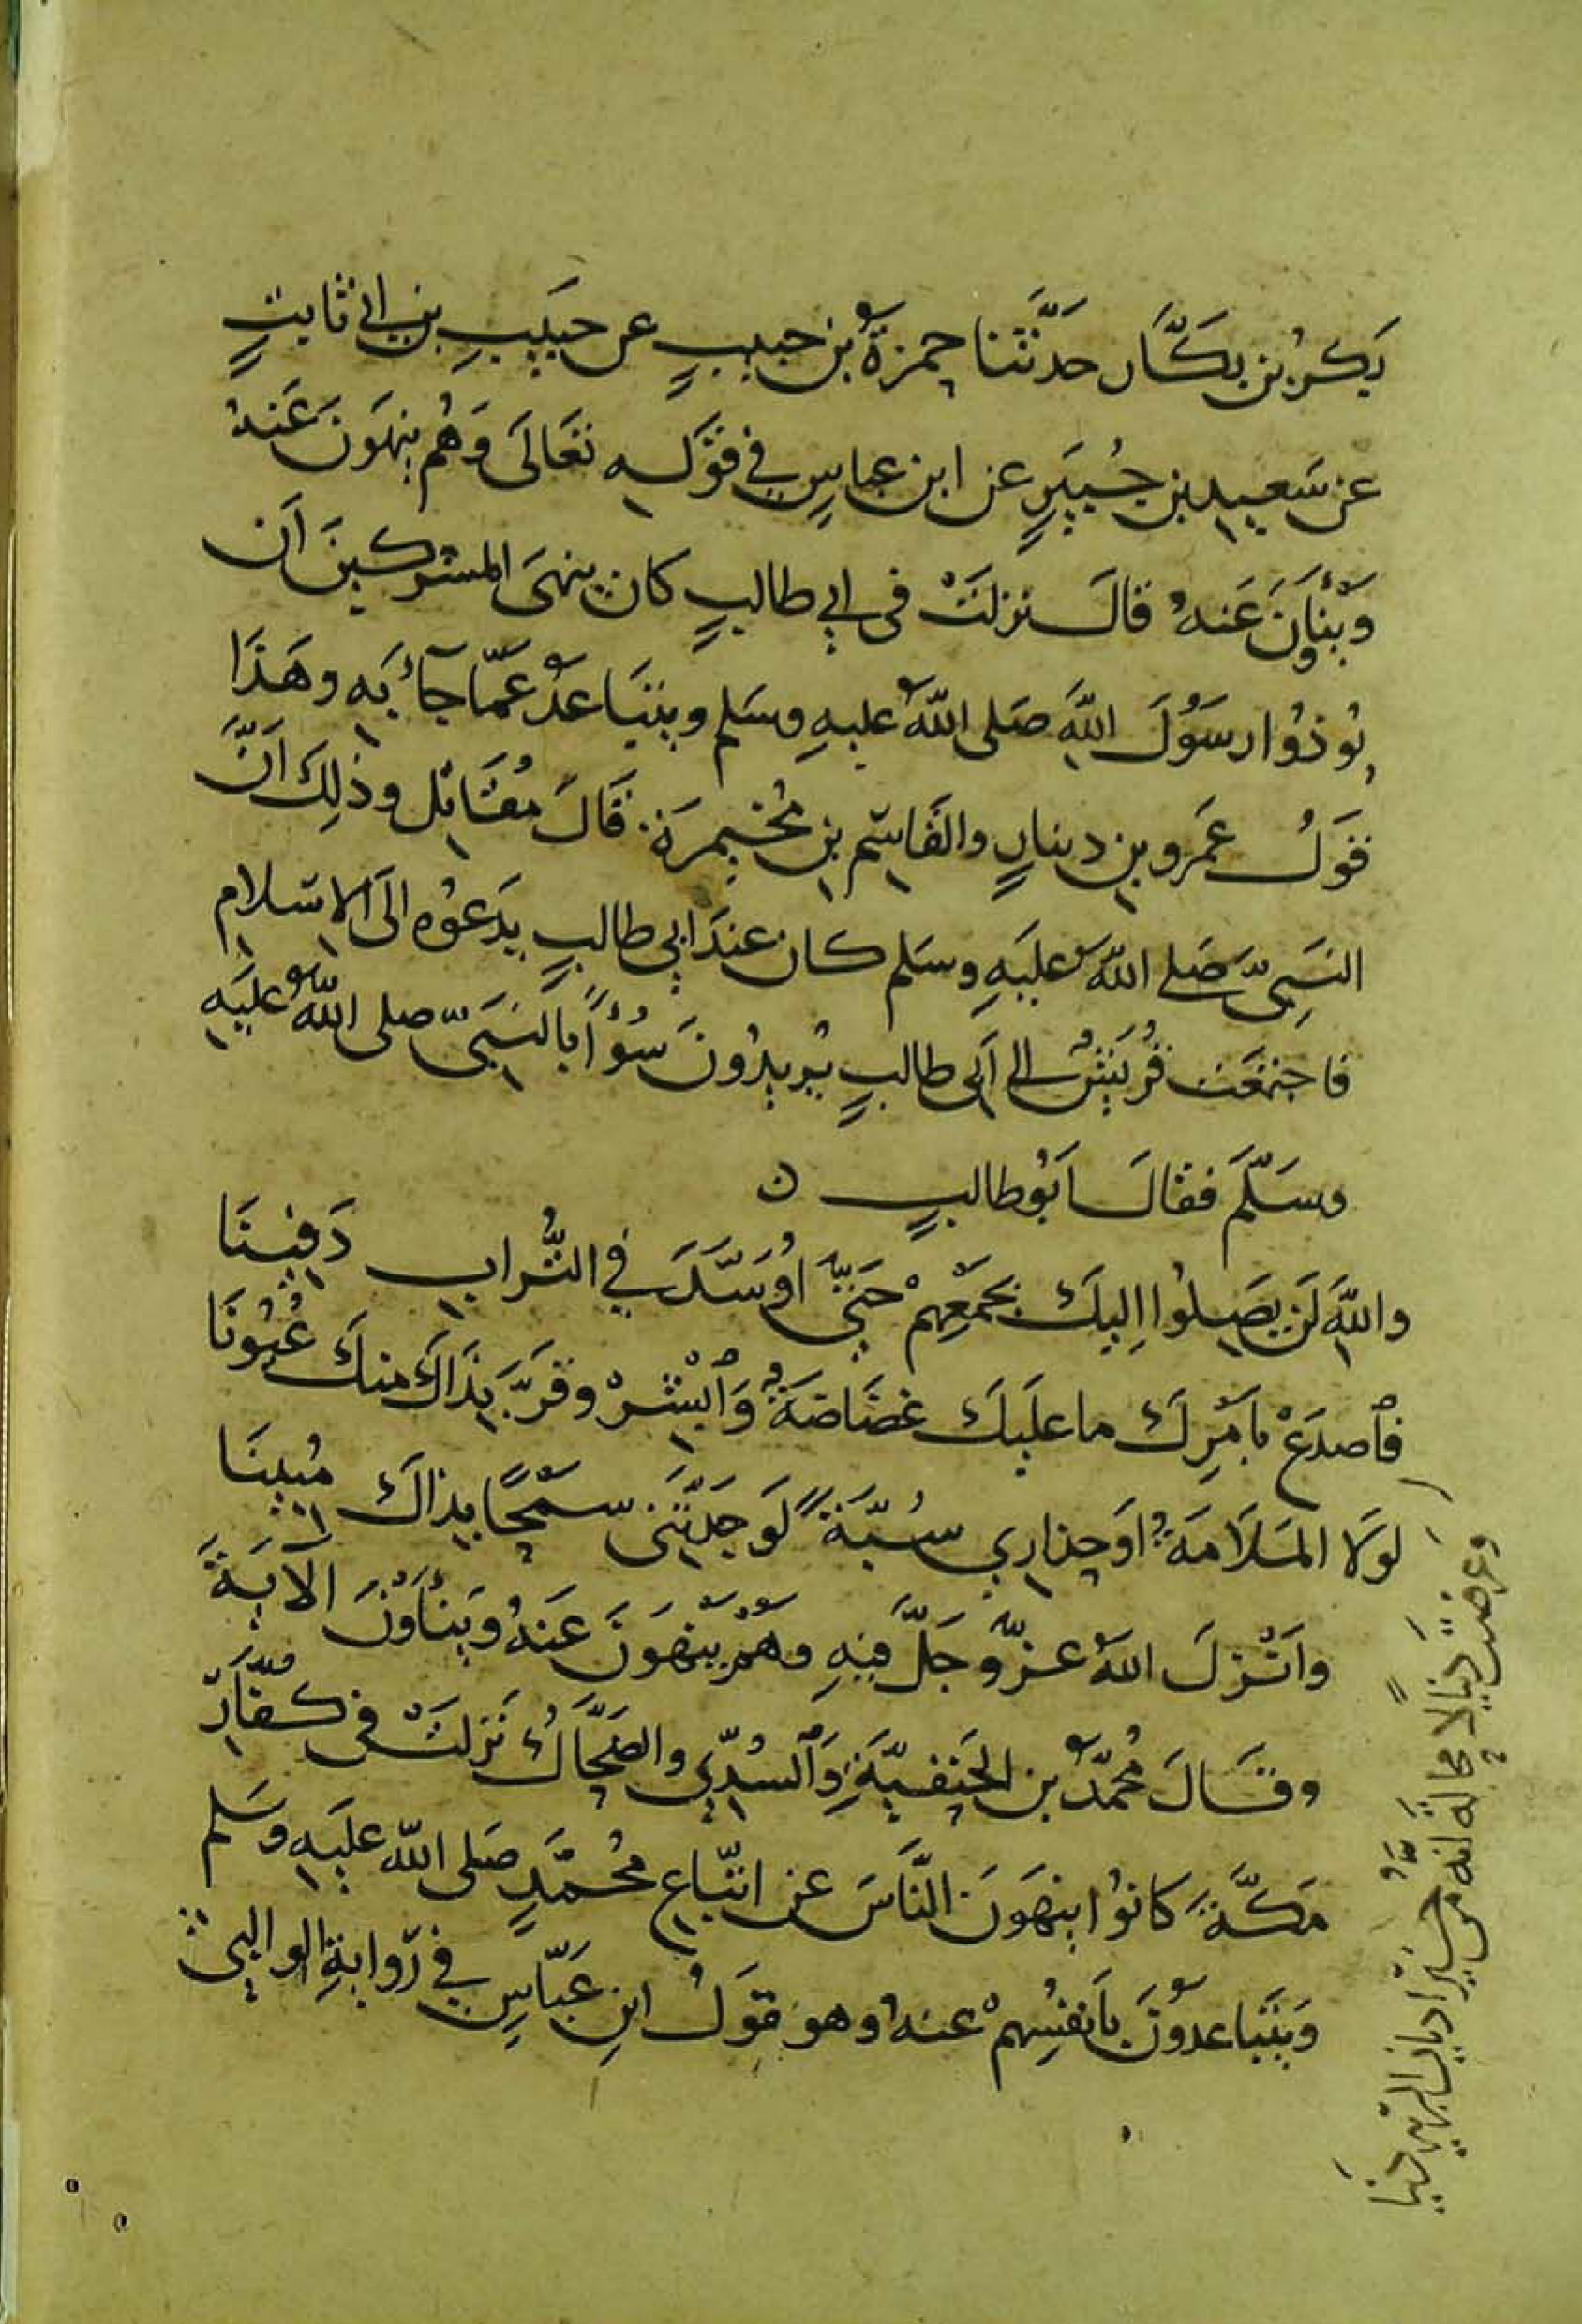 بَكرُ بن بكَّار حدَّثنا حمزةُ بن حبيبٍ عن حَبيبِ بن ابي ثابتٍ
عن سَعيد بن جُبَيرٍ عن ابن عباسٍ في قوله تعَالَى وَهُم ينهَونَ عَنهُ
وَيَنأَونَ عَنهُ قالَ نزلَتْ في ابي طالبٍ كان ينهَى المشركينَ اَن
يُوذُوا رسَوُلَ اللهِ صَلى اللهُ عليهِ وسَلم ويتَباعدُ عَمّا جآءَ بهِ وهَذَا
قَولُ عَمرو بن دينارٍ والقَاسِم بن مُخَيمِرَة قَالَ مُقَاتِل وذلِكَ اَنَّ
النَبِيّ صَلى اللهُ عليَهِ وسَلم كان عندَ ابي طالبٍ يدَعوُه الَى الاسَلام
فاجتمَعَت قُريَشٌ الى اَبي طالبٍ يُريدُونَ سُوءًا بالنَبيّ صلى اللهُ عليَهِ
وسَلّمَ فقالَ اَبُو طالبٍ ن
واللهِ لَن يصَلوُا اِليكَ بجَمْعِهِمْ حتَّى اُوسَّدَ في التُّراب دَفِينَا
فٱصدَعْ باَمْرِكَ ما عليَكَ غضَاضَةٌ وَٱبْشرْ وقَرَّ بِذَاكَ منكَ عُيُونَا
لوَلا المَلَامَةُ اوَ حِذاري سُبَّةً لَوَجَدْتَني سَمْحًا بذاكَ مُبِينَا
واَنْزلَ اللهُ عزّ وجَلَّ فيهِ وهُمْ يَنْهَونَ عَنهُ ويَنْأوْنَ الايَةَ
وقَالَ مُحمّدُ بن الحَنفيّةِ وَٱلسُّدّي والضَّحَّاكُ نَزلَتْ في كفَّارِ
مَكَّةَ كانوُا ينهَونَ النَّاسَ عن اتّباع مُحمّدٍ صَلى اللهُ عليَهِ وسَلم
وَيتَباعدوُنَ باَنفُسِهِمْ عنهُ وهو قوَلُ ابنِ عَبّاسٍ في رِوايةِ الوالبيّ
وعرضتَ دينًا لا محالَةَ انّهُ من خَيرِ اديانِ البريّةِ دينَا